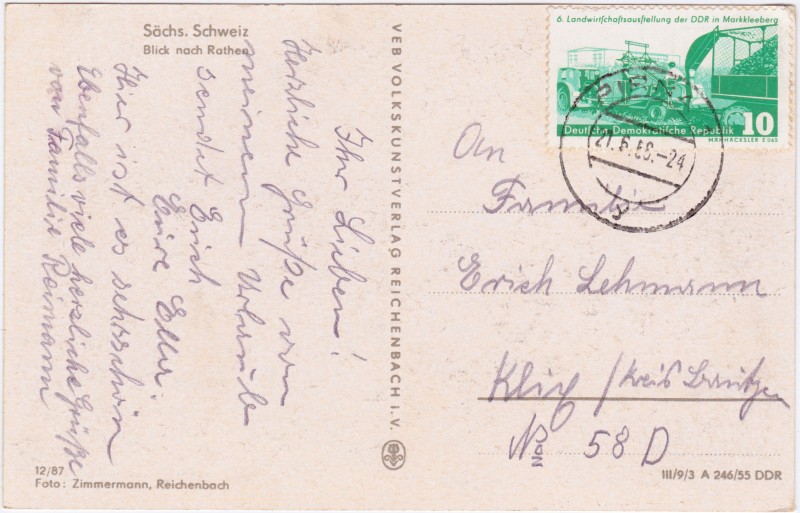 Sächs. Schweiz
Blick nach Rathen
Ihr Lieben!
Herzliche Grüße von
meinem Urlaub
sendet Erich
Eure Ella.
Hier ist es sehr schön
Ebenfalls viele herzliche Grüße
von Familie Reimann
12/87
Foto: Zimmermann, Reichenbach
VEB VOLKSKUNSTVERLAG REICHENBACH i. V.
6. Landwirtschaftsausstellung der DDR in Markkleeberg
Deutsche Demokratische Republik 10
MÄHHÄCKSLER E 065
PIRNA
21.6.58.-24
An
Familie
Erich Lehmann
Klix / Kreis Bautzen
No 58 D
III/9/3 A 246/55 DDR